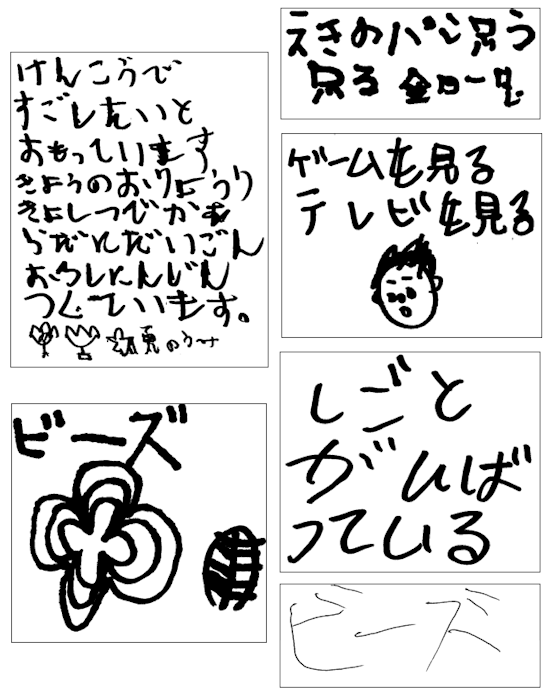 けんこうで
すごしたいと
おもっています
きょうのおりょうり
きょしつでかも
らだれだいごん
おろしにんじん
つくっています。
ビーズ
えきのパン買う
見る
ゲームを見る
テレビを見る
しごと
がんば
っている
ビーズ